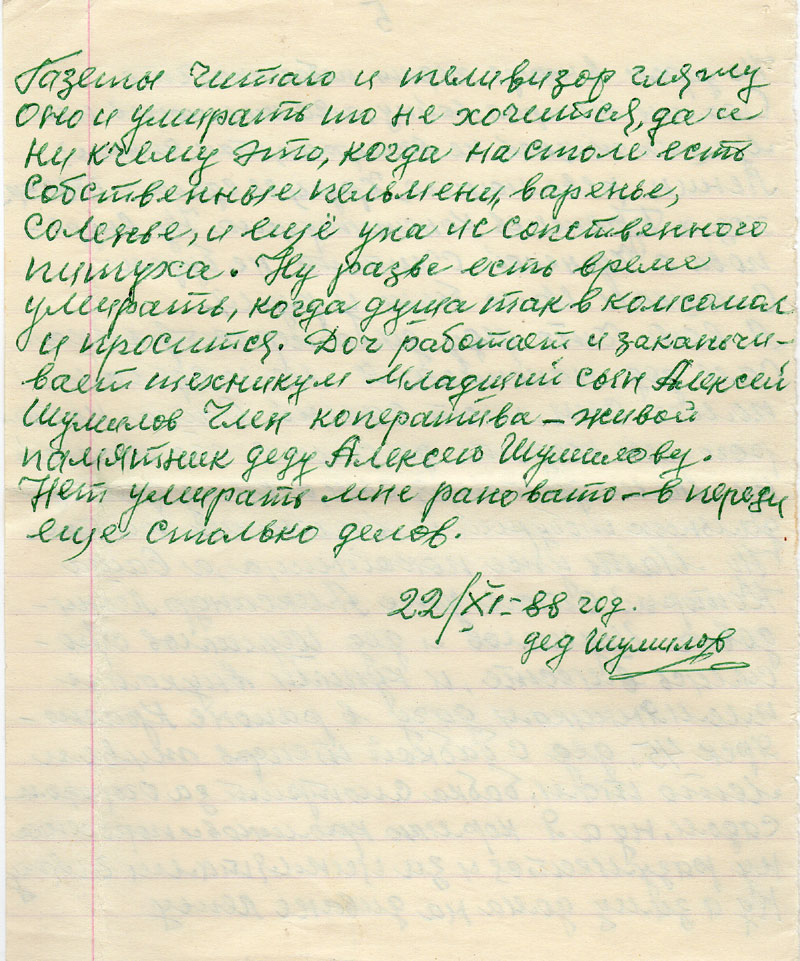 Газеты читаю и теливизор гляжу
оно и умирать то не хочится, да и
ни к чему это, когда на столе есть
собственные пельмени, варенье,
соленье, и ещё уха ис сопственного
питуха. Ну разве есть время
умирать, когда душа так в комсомол
и просится. Доч работает и заканчи-
вает техникум младший сын Алексей
Шумилов член коператива – живой
памятник деду Алексею Шумилову.
Нет умирать мне рановато – в переди
еще столько делов.
22/XI-88 год.
дед Шумилов